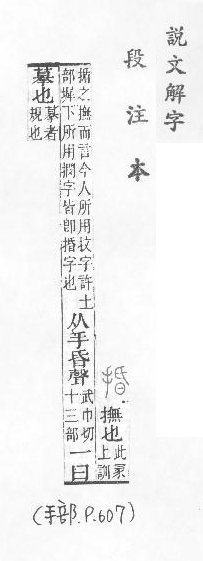 說文解字
段注本
捪
撫也
此冡
上訓
揗之撫而言今人所用抆字許土
部墀下所用撋字皆卽捪字也
从手昏聲
武巾切
十三部
一曰
摹也
摹者
規也
(手部.P.607)